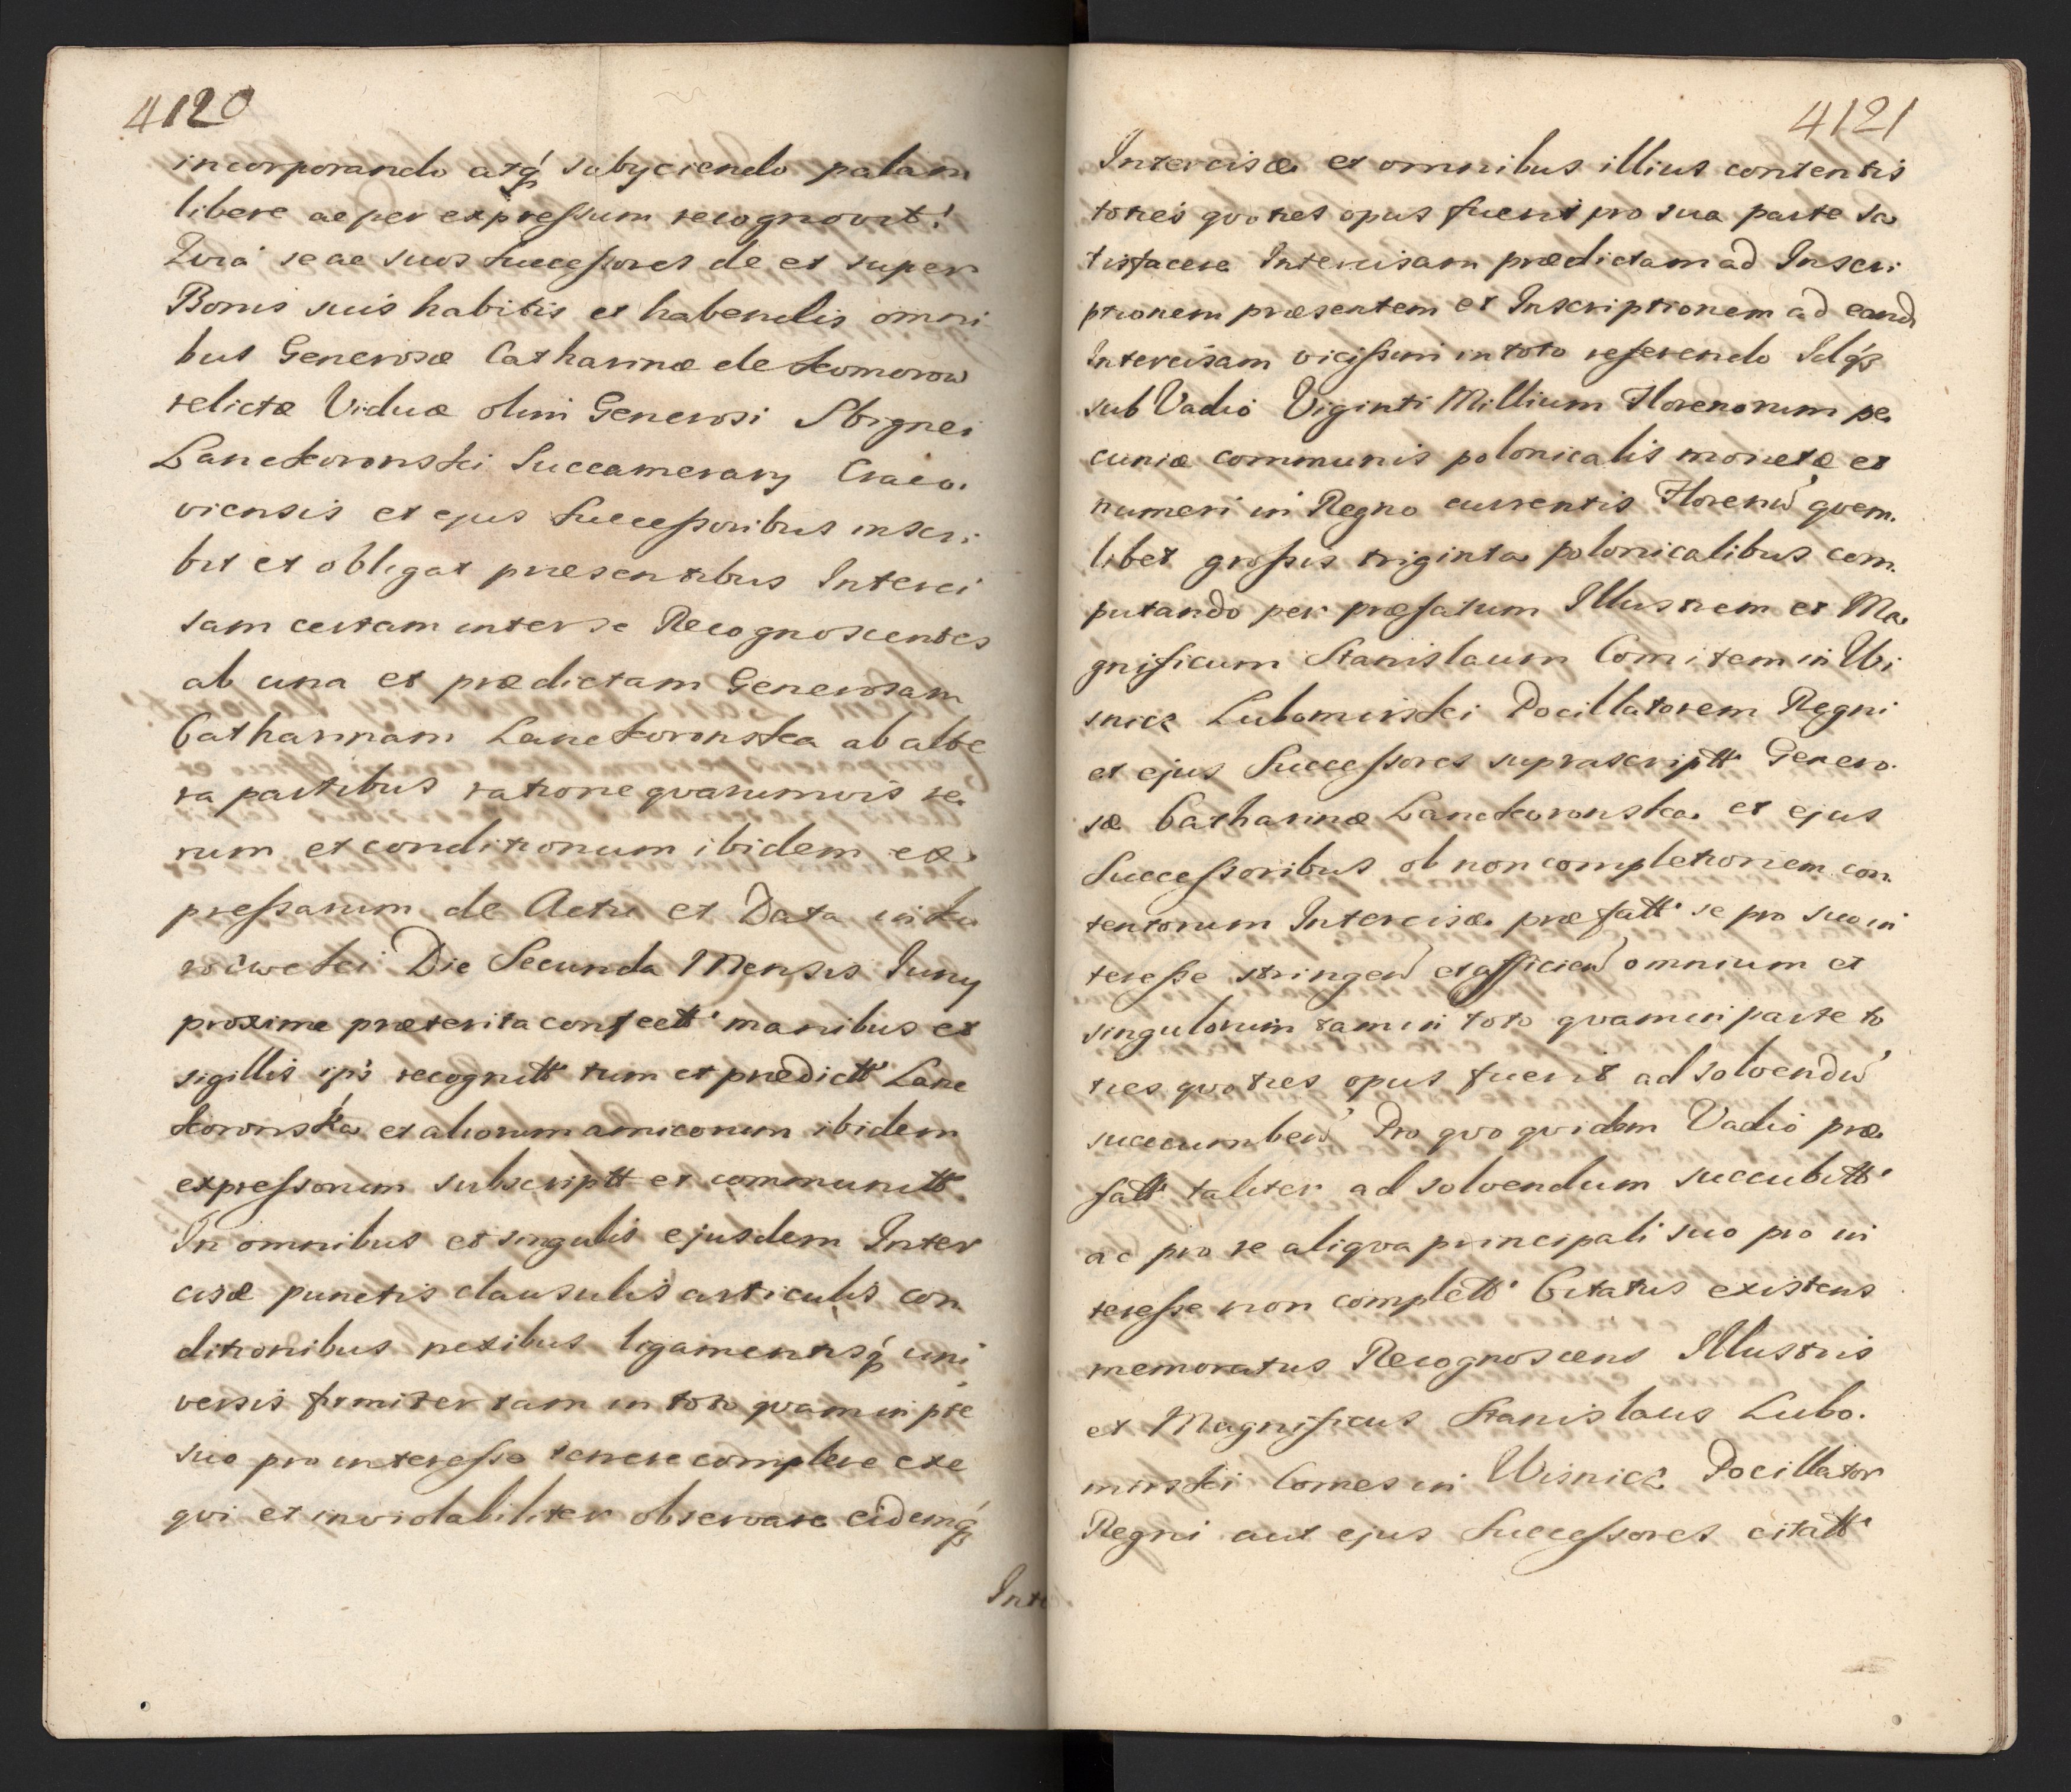 4120
incorporando atq́ subyciendo palam
libere ac per expressum recognovit!
Qvia se ac suos Successores de et super
Bonis suis habitis et habendis omni
bus Generosæ Catharinæ de Komorow
relictæ Viduæ olim Generosi Sbignei
Lanckoronski Succamerary Craco.
viensis et ejus Successoribus inscri
bit et obligat præsentibus Interci
sam certam inter se Recognoscentes
ab una et prædictam Generosam
Catharinam Lanckoronska ab alte
ra partibus ratione qvarumvis re.
rum et conditionum ibidem ex.
pressarum de Actu et Data in
Die Secunda Mensis Juny
proxime præterita confectt manibus et
sigillis ips recognitt tum et prædictt Lanc
koronska et aliorum amicorum ibidem
expressorum subscriptt et communitt
In omnibus et singulis ejusdem Inter
cisæ punctis clausulis articulis con
ditionibus nexibus ligamentisq́ uni
versis firmiter tam in toto qvam in pte
suo pro interesse tenere complere exe
qvi et inviolabiliter observare eidemq́
Inter
4121
Intercisæ et omnibus illius contentis
toties qvoties opus fuerit pro sua parte sa
tisfacere Intercisam prædictam ad Inscri
ptionem præsentem et Inscriptionem ad eand
Intercisam vicissim in toto referendo Idq́
sub Vadio Viginti Millium Florenorum pe.
cuniæ communis polonicalis monetæ et
numeri in Regno currentis Florenũ qvem.
libet grossis triginta polonicalibus com.
putando per præfatum Illustrem et Ma.
gnificum Stanislaum Comitem in Wi
snicz Lubomirski Pocillatorem Regni
et ejus Successores suprascriptt Genero.
sæ Catharinæ Lanckoronska et ejus
Successoribus ob non completionem con.
tentorum Intercisæ præfatt se pro suo in
teresse stringeñ et afficieñ omnium et
singulorum tam in toto qvam in parte to
ties qvoties opus fuerit ad solvendũ
succumbeñ Pro qvo qvidem Vadio præ.
fatt taliter ad solvendum succubitt
ac pro re aliqva principali suo pro in
teresse non complett Citatus existens
memoratus Recognoscens Illustris
et Magnificus Stanislaus Lubo.
mirski Comes in Wisnicz Pocillator
Regni aut ejus Successores citatt